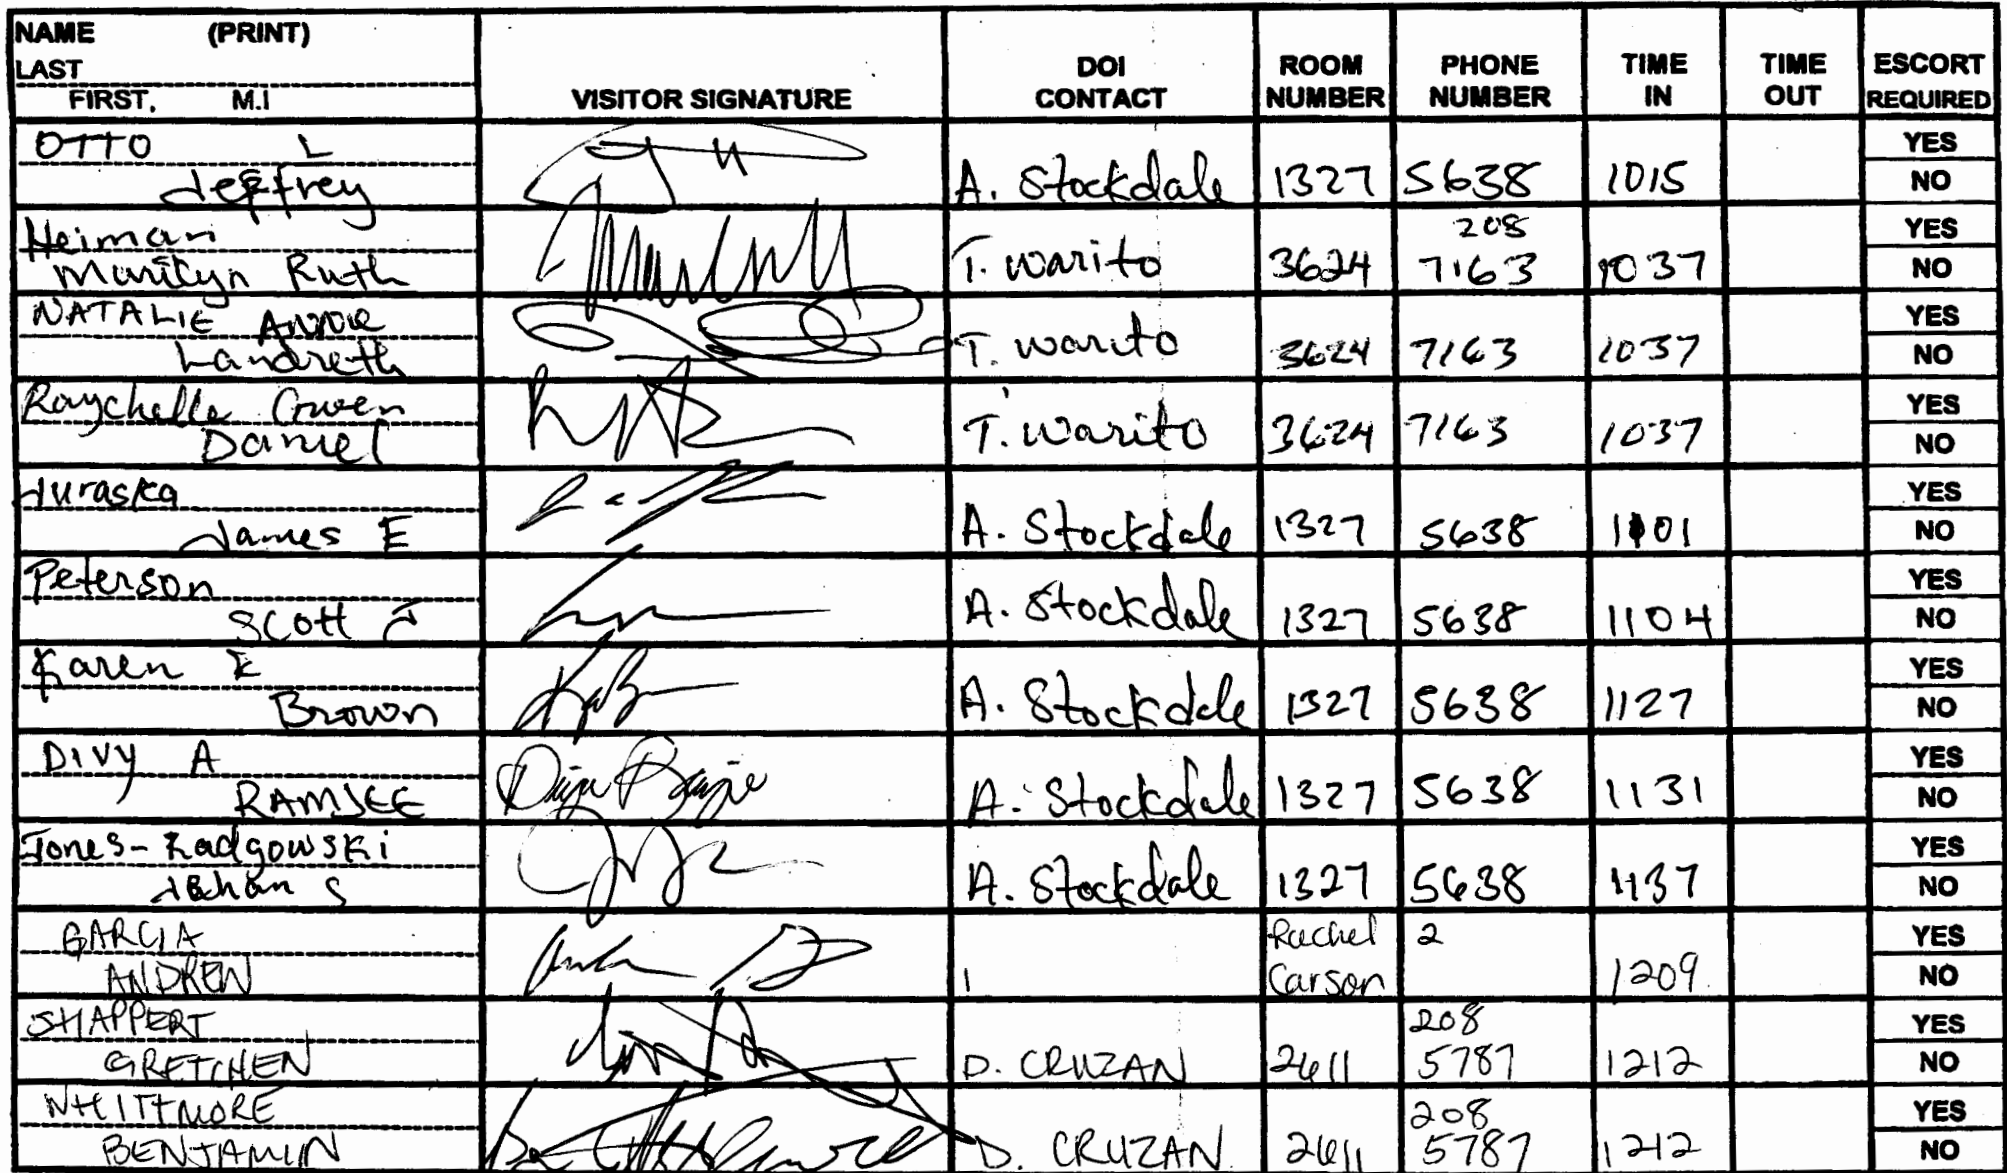 NAME (PRINT)
LAST
FIRST, M.I
VISITOR SIGNATURE
DOI CONTACT
ROOM NUMBER
PHONE NUMBER
TIME IN
TIME OUT
ESCORT REQUIRED
OTTO L YES
Jeffrey A. Stockdale 1327 5638 1015 NO
Heiman 208 YES
Marilyn Ruth T. Warito 3624 7163 1037 NO
NATALIE Anne YES
Landreth T. Warito 3624 7163 1037 NO
Raychelle Gwen YES
Daniel T. Warito 3624 7163 1037 NO
Juraska YES
James E A. Stockdale 1327 5638 1101 NO
Peterson YES
Scott J A. Stockdale 1327 5638 1104 NO
Karen E YES
Brown A. Stockdale 1327 5638 1127 NO
DIVY A YES
RAMJEE A. Stockdale 1327 5638 1131 NO
Jones-Radgowski YES
Jehan S A. Stockdale 1327 5638 1137 NO
GARCIA Rachel 2 YES
ANDREW Carson 1209 NO
SHAPPERT 208 YES
GRETCHEN D. CRUZAN 2611 5787 1212 NO
WHITTMORE 208 YES
BENJAMIN D. CRUZAN 2611 5787 1212 NO